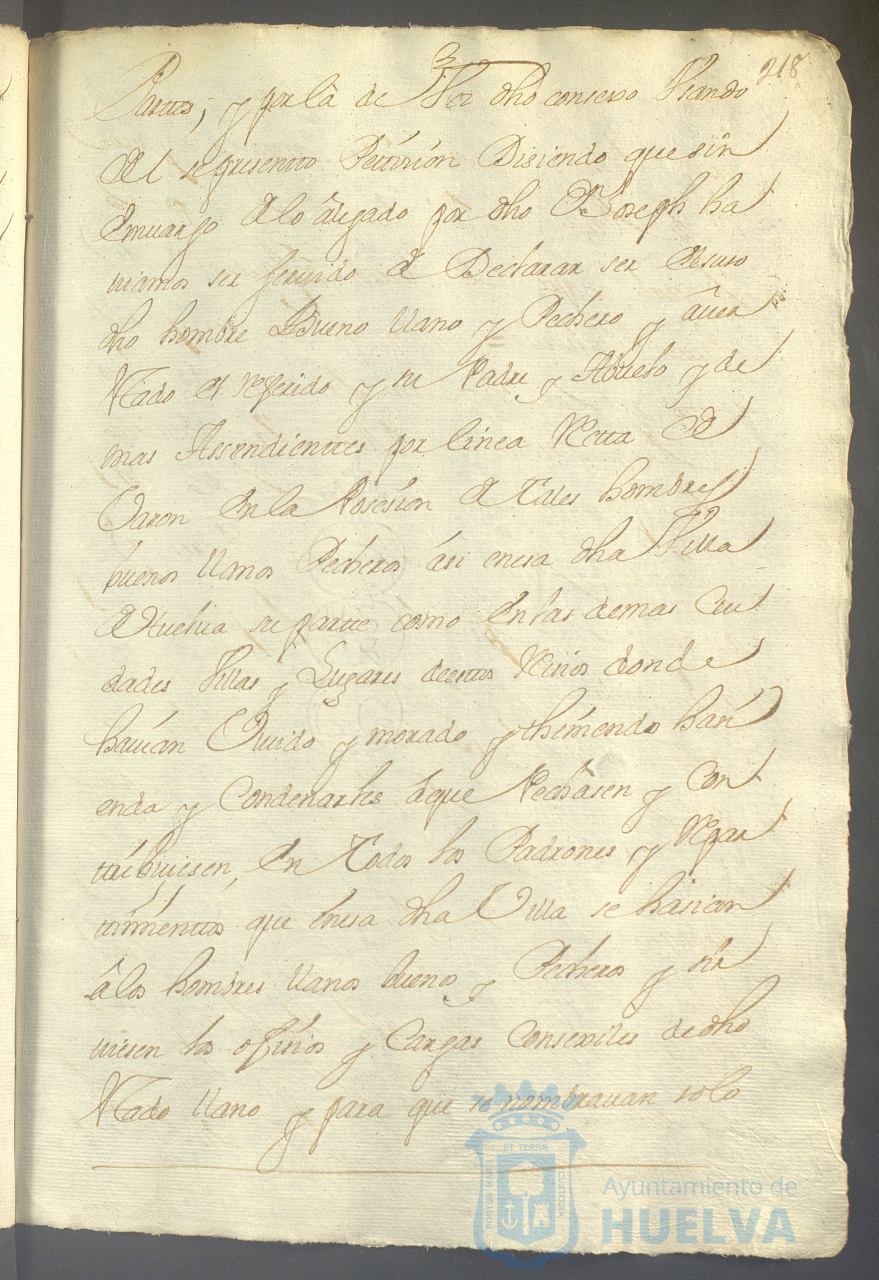 218
Partte, y por la de dho consexo Usando
del se presentto Pettizion Disiendo que sin
Emvargo de lo alegado por dho Dn Joseph ha
viamos ser servido de Declarar ser el suso
dho hombre Bueno llano y Pechero y aver
estado el referido y su Padre y Abuelo y de
mas Ascendienttes por linea Rectta de
Varon en la Posesion de tales hombres
buenos llanos Pecheros asi en esa dha Villa
de Huelva su partte como en las demas Ciu
dades Villas y Lugares de esttos Reinos donde
havian Vivido y morado y thenido hasi
enda y Condenarles a que Pechasen y Con
ttribuiesen en todos los Padrones y Repar
ttimienttos que en esa dha Villa se hasian
a los hombres llanos buenos y Pecheros y sir
viesen los ofisios y Cargas Consexiles de dho
estado llano y para que se nombravan solo
PORTUS MARIS
ET TERRÆ
CUSTODIA
Ayuntamiento de
HUELVA